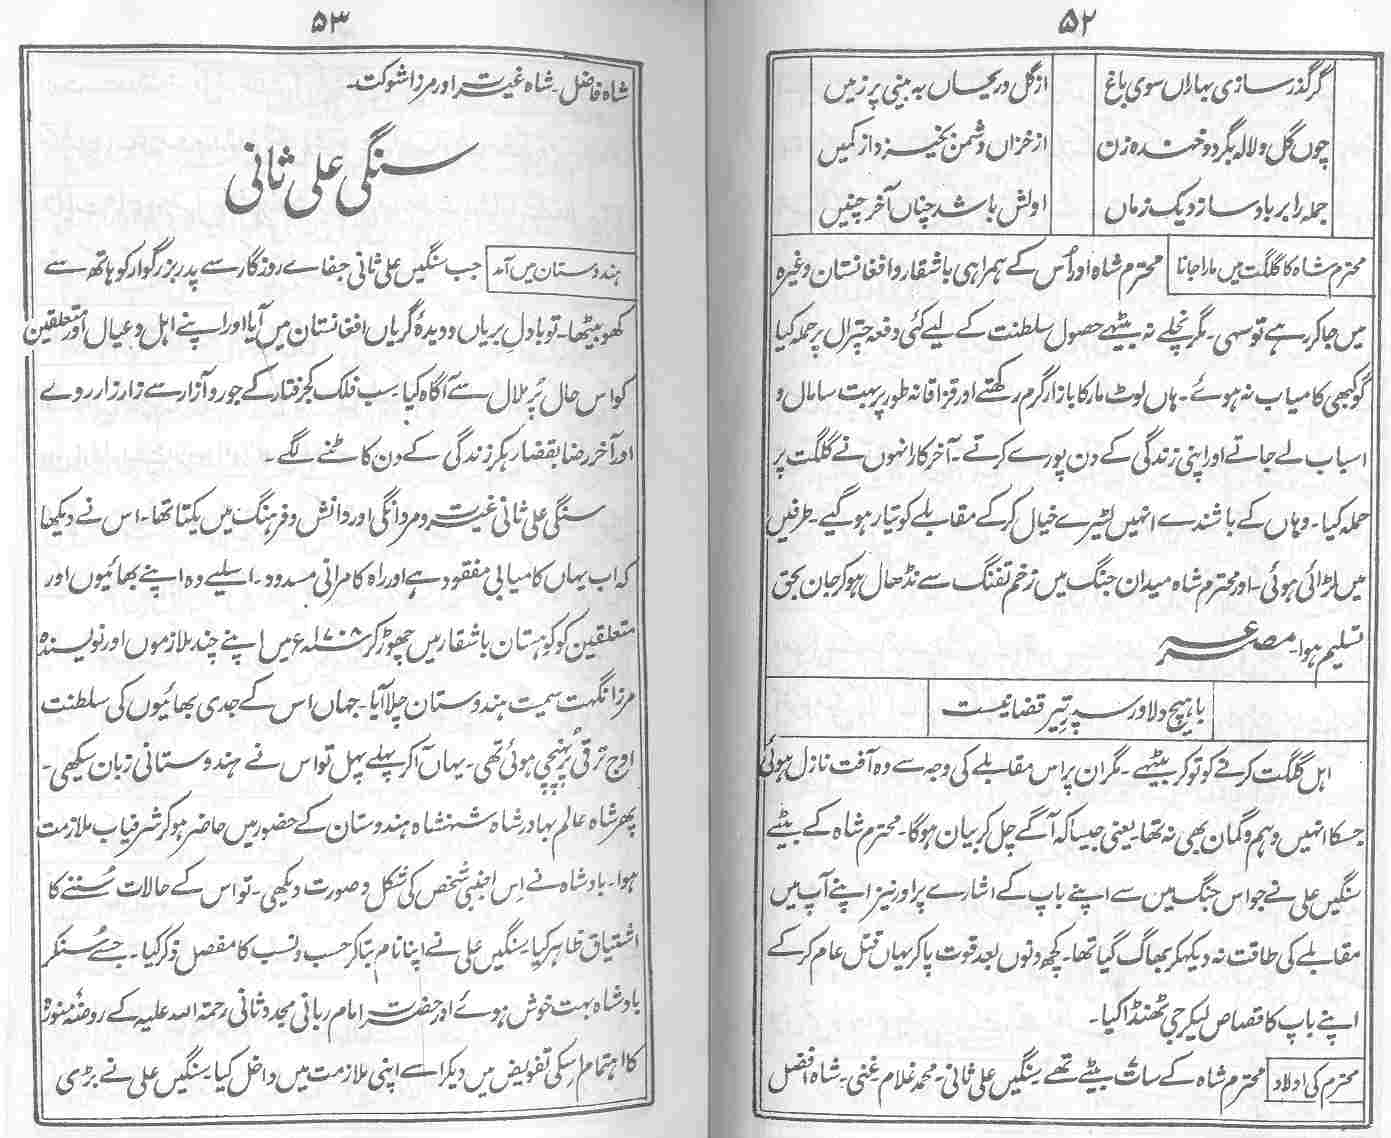 ۵۲
گر گذر سازی بہاراں سوی باغ
از گل و ریحاں بہ بینی پر زمیں
چوں گل و لالہ بگردد خندہ زن
از خزاں دشمن بخیزد از کمیں
جملہ را برباد سازد یک زماں
اولش باشد چناں آخر چنیں
محترم شاہ کا گلگت میں مارا جانا
محترم شاہ اور اُس کے ہمراہی باشقار و افغانستان وغیرہ
میں جا کر رہے تو سہی۔ مگر نچلے نہ بیٹھے حصول سلطنت کے لیے کئی دفعہ چترال پر حملہ کیا
گو کبھی کامیاب نہ ہوئے۔ ہاں لوٹ مار کا بازار گرم رکھتے اور قزاقانہ طور پر بہت سامال و
اسباب لے جاتے اور اپنی زندگی کے دن پورے کرتے۔ آخر کار انہوں نے گلگت پر
حملہ کیا۔ وہاں کے باشندے انہیں لٹیرے خیال کر کے مقابلے کو تیار ہو گیے۔ طرفیں
میں لڑائی ہوئی۔ اور محترم شاہ میدان جنگ میں زخم تفنگ سے نڈھال ہو کر جان بحق
تسلیم ہوا۔ مصرعہ
با ہیچ دلاور سپر تیر قضا نیست
اہل گلگت کرنے کو تو کر بیٹھے۔ مگر ان پر اس مقابلے کی وجہ سے وہ آفت نازل ہوئی
جسکا انہیں وہم و گمان بھی نہ تھا۔ یعنی جیسا کہ آگے چل کر بیان ہوگا۔ محترم شاہ کے بیٹے
سنگیں علی نے جو اس جنگ میں سے اپنے باپ کے اشارے پر اور نیز اپنے آپ میں
مقابلے کی طاقت نہ دیکھکر بھاگ گیا تھا۔ کچھ دنوں بعد قوت پا کر یہاں قتل عام کر کے
اپنے باپ کا قصاص لیکر جی ٹھنڈا کیا۔
محترم کی اولاد
محترم شاہ کے سات بیٹے تھے سنگیں علی ثانی۔ محمد غلام۔ غنی۔ شاہ افضل
۵۳
شاہ فاضل۔ شاہ غیرت اور مرزا شوکت۔
سنگی علی ثانی
ہندوستان میں آمد
جب سنگیں علی ثانی جفاے روزگار سے پدر بزرگوار کو ہاتھ سے
کھو بیٹھا۔ تو بادل بریاں و دیدۂ گریاں افغانستان میں آیا اور اپنے اہل و عیال اور متعلقین
کو اس حال پُر ملال سے آگاہ کیا۔ سب فلک کجرفتار کے جور و آزار سے زار زار روے
اور آخر رضا بقضا رہکر زندگی کے دن کاٹنے لگے۔
سنگی علی ثانی غیرت و مردانگی اور دانش و فرہنگ میں یکتا تھا۔ اس نے دیکھا
کہ اب یہاں کامیابی مفقود ہے اور راہ کامرانی مسدود۔ اسلیے وہ اپنے بھائیوں اور
متعلقین کو کوہستان باشقار میں چھوڑ کر ۱۷۰۸ء میں اپنے چند ملازموں اور نویسندہ
مرزا نگہت سمیت ہندوستان چلا آیا۔ جہاں اس کے جدی بھائیوں کی سلطنت
اوج ترقی پر پہنچی ہوئی تھی۔ یہاں آ کر پہلے پہل تو اس نے ہندوستانی زبان سیکھی۔
پھر شاہ عالم بہادر شاہ شہنشاہ ہندوستان کے حضور میں حاضر ہو کر شرفیاب ملازمت
ہوا۔ بادشاہ نے اِس اجنبی شخص کی شکل و صورت دیکھی۔ تو اس کے حالات سُننے کا
اشتیاق ظاہر کیا۔ سنگیں علی نے اپنا نام بتا کر حسب و نسب کا مفصل ذکر کیا۔ جسے سُنکر
بادشاہ بہت خوش ہوئے اور حضرت امام ربانی مجدد ثانی رحمۃ اللہ علیہ کے روضۂ منورہ
کا اہتمام اسکی تفویض میں دیکر اسے اپنی ملازمت میں داخل کیا۔ سنگیں علی نے بڑی